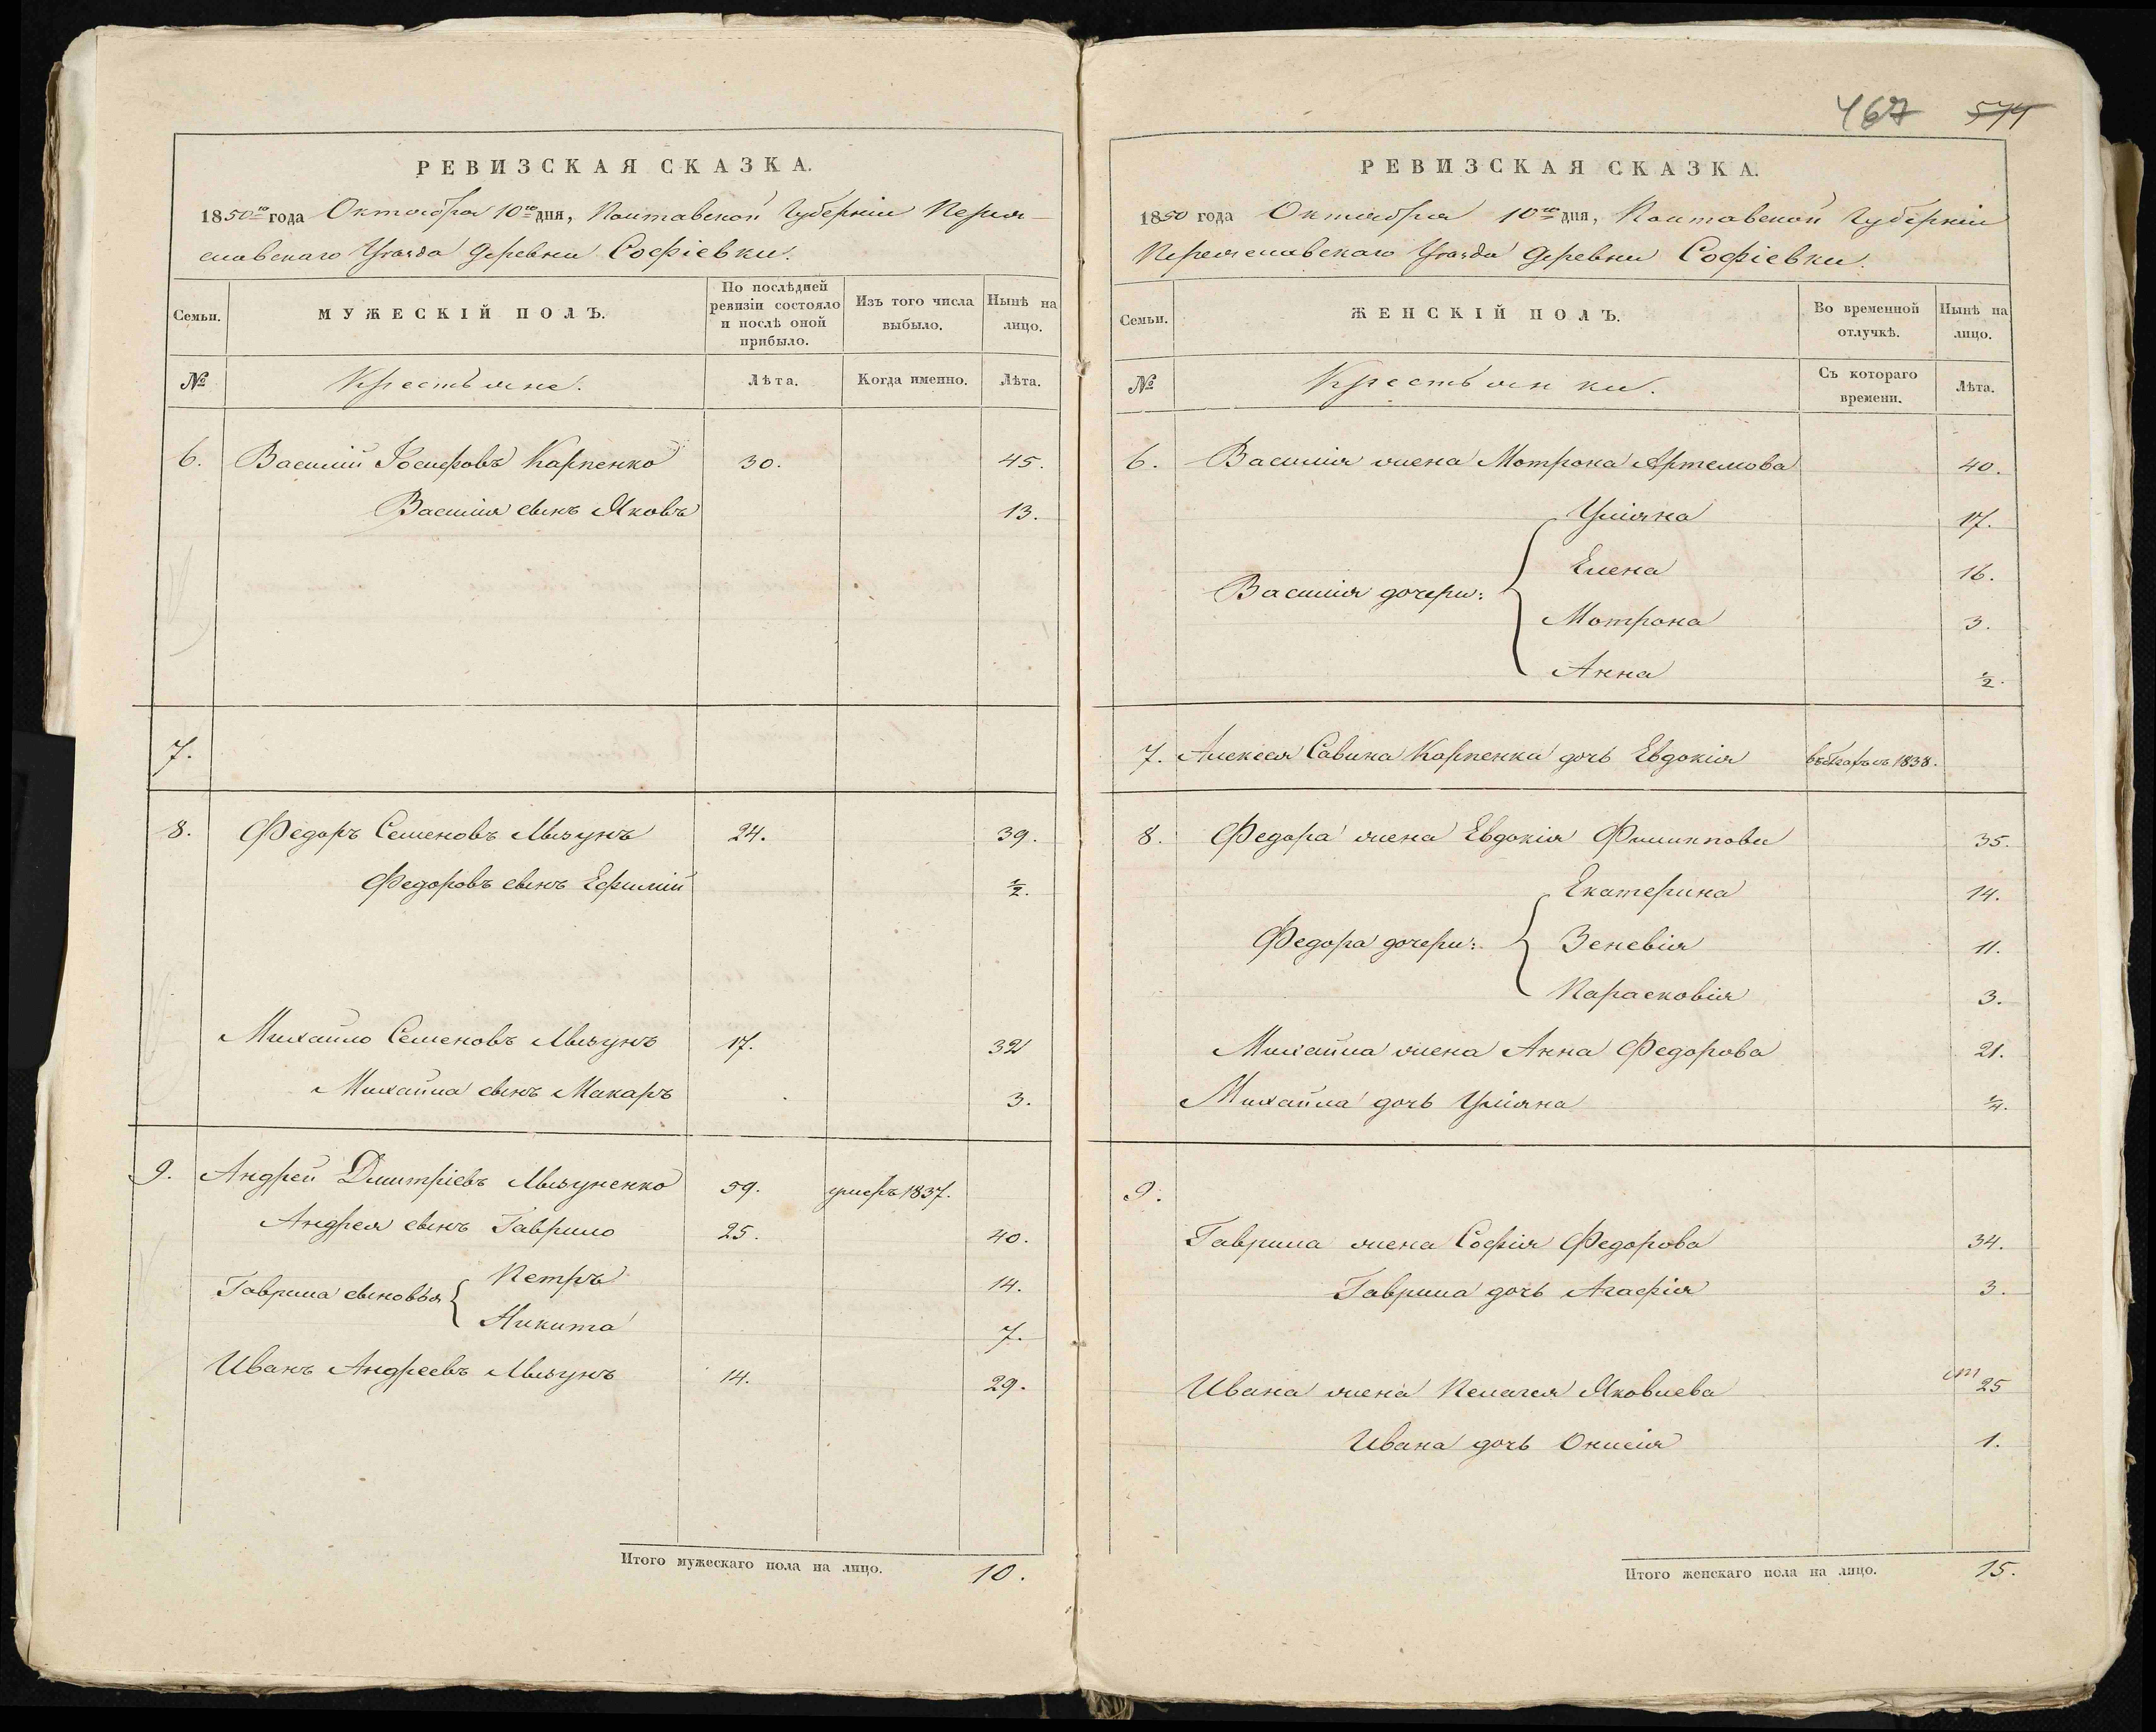 РЕВИЗСКАЯ СКАЗКА.
1850го года Октября 10го дня, Полтавской Губерніи Перея-
славскаго Уѣзда деревни Софіевки.
Семьи.
МУЖЕСКІЙ ПОЛЪ.
По послѣдней ревизіи состояло и послѣ оной прибыло.
Изъ того числа выбыло.
Нынѣ на лицо.
№
Крестьяне.
Лѣта.
Когда именно.
Лѣта.
6. Василій Іосифовъ Карпенко 30. 45.
Василія сынъ Яковъ 13.
7.
8. Федоръ Семеновъ 24. 39.
Федоровъ сынъ Ефимій ½.
Михайло Семеновъ 17. 32
Михайла сынъ Макаръ 3.
9. Андрей Дмитріевъ 59. умеръ 1837.
Андрея сынъ Гаврило 25. 40.
Гаврила сыновья
Петръ 14.
Никита 7.
Иванъ Андреевъ 14. 29.
Итого мужескаго пола на лицо. 10.
467 574
РЕВИЗСКАЯ СКАЗКА.
1850 года Октября 10го дня, Полтавской Губерніи
Переяславскаго Уѣзда деревни Софіевки.
Семьи.
ЖЕНСКІЙ ПОЛЪ.
Во временной отлучкѣ.
Нынѣ на лицо.
№
Крестьянки.
Съ котораго времени.
Лѣта.
6. Василія жена Мотрона Артемова 40.
Василія дочери:
Уліяна 17.
Елена 16.
Мотрона 3.
Анна ½.
7. Алексея Савина Карпенка дочь Евдокія 1838.
8. Федора жена Евдокія Филиппова 35.
Федора дочери:
Екатерина 14.
Зеневія 11.
Парасковія 3.
Михайла жена Анна Федорова 21.
Михайла дочь Уліяна ¼.
9.
Гаврила жена Софія Федорова 34.
Гаврила дочь Агафія 3.
Ивана жена Пелагея Яковлева 25
Ивана дочь Онисія 1.
Итого женскаго пола на лицо. 15.